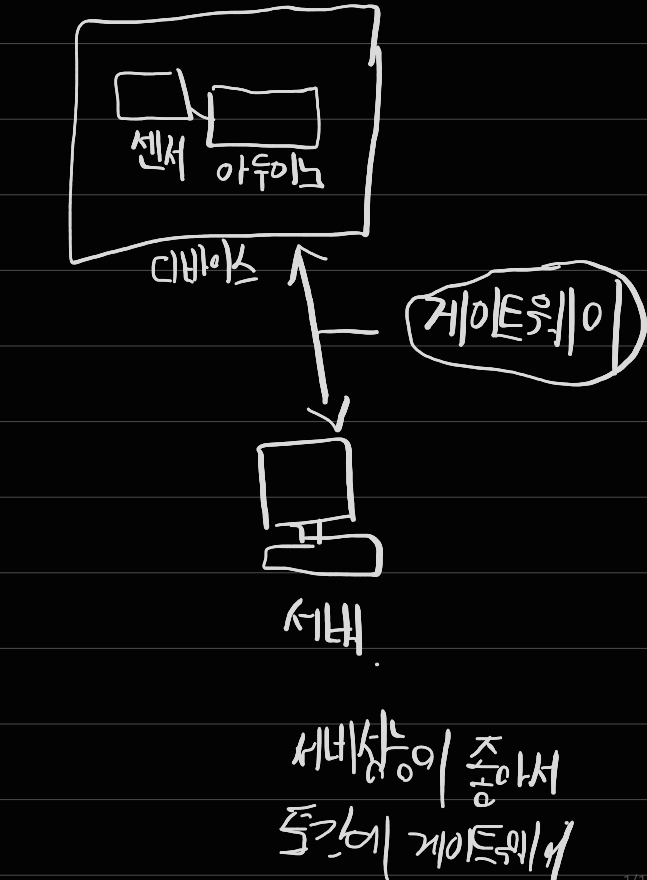 센서
아두이노
디바이스
게이트웨이
서버
성능이 좋아서
게이트웨이